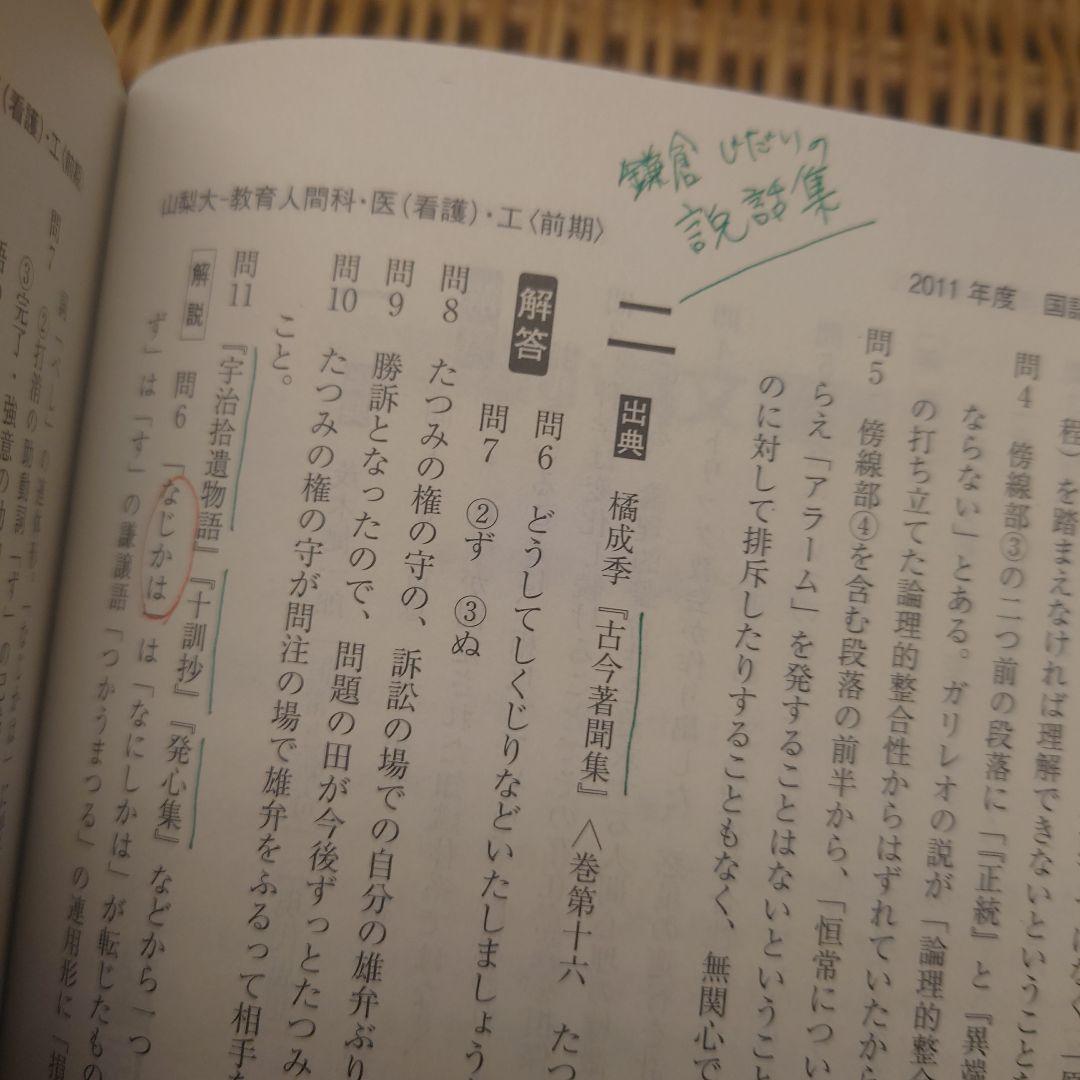 鎌倉じだいの
説話集
山梨大-教育人間科・医(看護)・工〈前期〉
2011年度 国語
程)を踏まえなければ理解できないという
問4 傍線部③の二つ前の段落に「『正統』と『異端
ならない」とある。ガリレオの説が「論理的整合
の打ち立てた論理的整合性からはずれていたから
問5 傍線部④を含む段落の前半から、「恒常につい
らえ「アラーム」を発することはないということ
のに対して排斥したりすることもなく、無関心で
二 出典 橘成季『古今著聞集』〈巻第十六 たつ
解答 問6 どうしてしくじりなどいたしましょう
問7 ②ず ③ぬ
問8 たつみの権の守の、訴訟の場での自分の雄弁ぶり
問9 勝訴となったので、問題の田が今後ずっとたつみ
問10 たつみの権の守が問注の場で雄弁をふるって相手
こと。
問11 『宇治拾遺物語』『十訓抄』『発心集』などから一つ
解説 問6 「なじかは」は「なにしかは」が転じたもの
ず」は「す」の謙譲語「つかうまつる」の連用形に「
(看護)・工〈前期〉
問7
②打消の助動詞「ず」の
③完了・強意の助